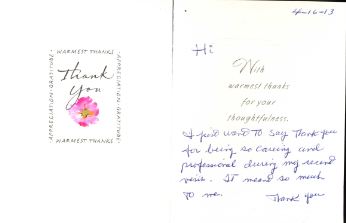 WARMEST THANKS
APPRECIATION · GRATITUDE ·
Thank
You
APPRECIATION · GRATITUDE ·
WARMEST THANKS
4-16-13
Hi
With
warmest thanks
for your
thoughtfulness.
I just want to say thank you
for being so caring and
professional during my recent
It meant so much
to me. Thank you